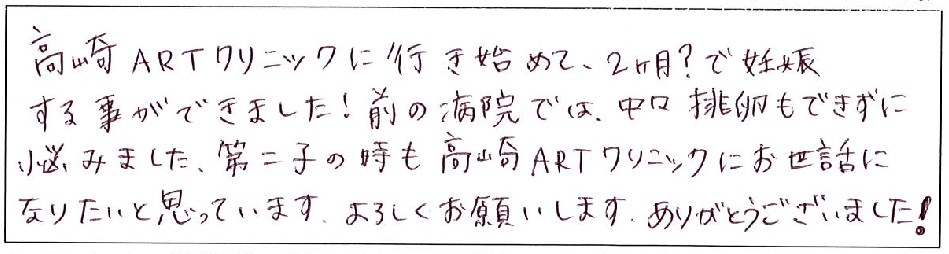 高崎ARTクリニックに行き始めて、2ヶ月?で妊娠
する事ができました!前の病院では、中々排卵もできずに
悩みました、第二子の時も高崎ARTクリニックにお世話に
なりたいと思っています、よろしくお願いします、ありがとうございました!